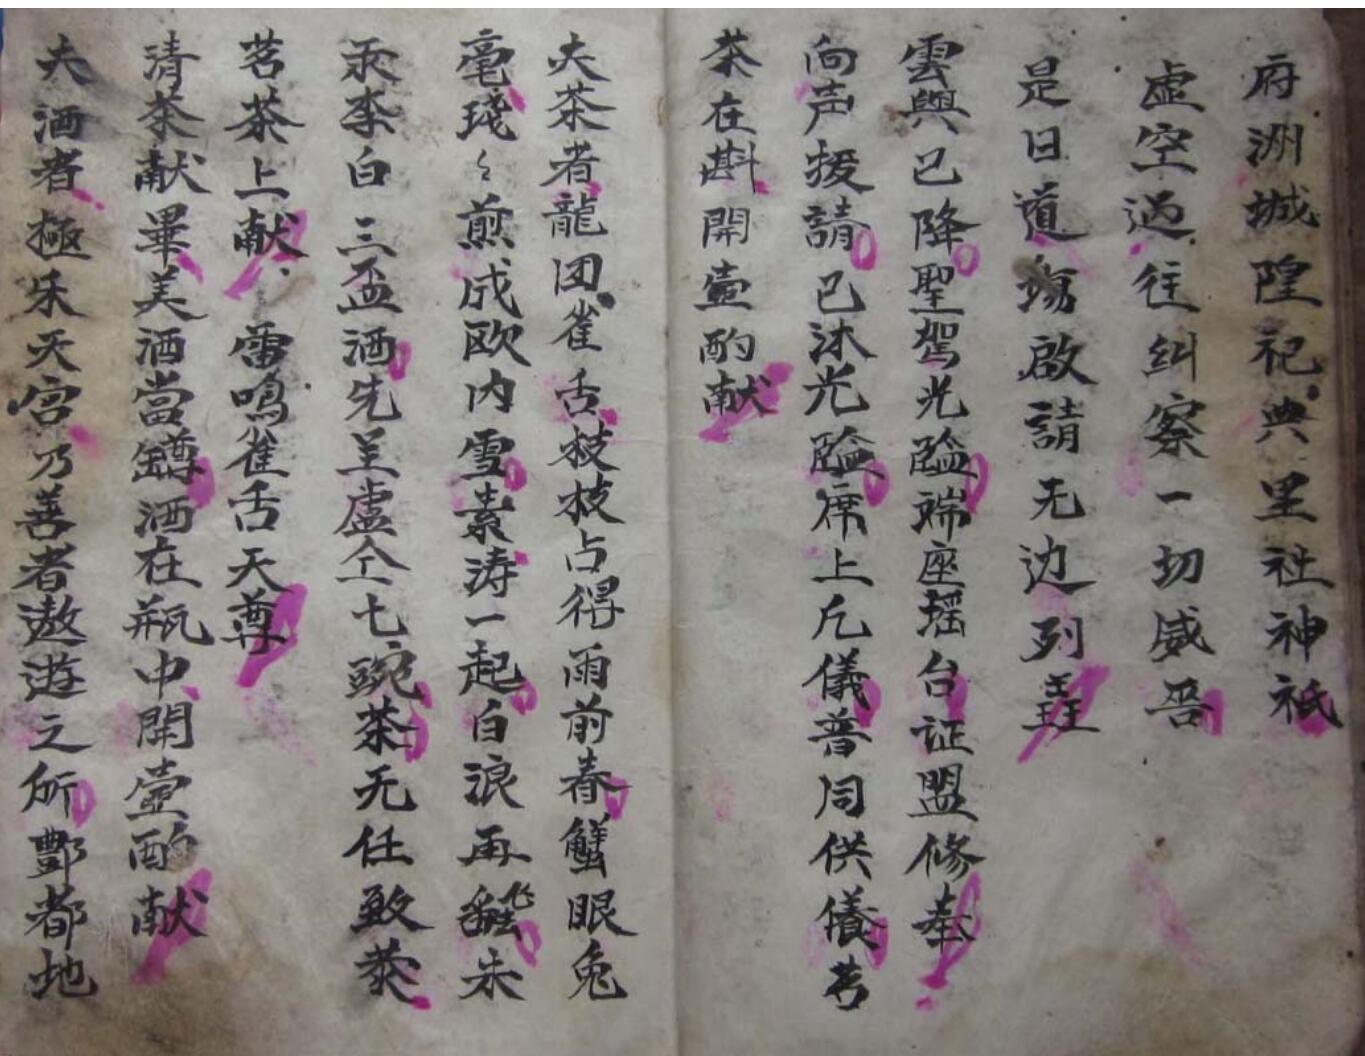 府洲城隍祀典里社神祇
虚空过往纠察一切威
是日道場啟請无边列聖
雲與已降聖驾光臨瑞座摇台证盟修奉
向声援請已沐光臨席上凡儀普同供養
茶在斟開壶酌献
夫茶者龍团雀舌枝枝占得雨前春蟹眼兔
毫琖〻煎成欧内雪素涛一起白浪再飜未
李白三盃酒先呈盧仝七豌茶无任致恭
茗茶上献雷鳴雀舌天尊
清茶献畢美酒當罇酒在瓶中開壺酌献
夫酒者極乐天宫乃善者遨遊之所酆都地